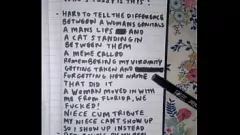 - HARD TO TELL THE DIFFERENCE
BETWEEN A WOMANS GENITALS
A MANS LIPS AND A
CAT STANDING IN
BETWEEN THEM
A MEME CALLED
REMEMBERING MY VIRGINITY
GETTING TAKEN AND
FORGETTING HER NAME
THAT DID IT
A WOMAN MOVED IN WITH
ME FROM FLORIDA, WE
FUCKED!
NIECE CUM TRIBUTE
MY NIECE CANT SHOW UP
SO I SHOW UP INSTEAD